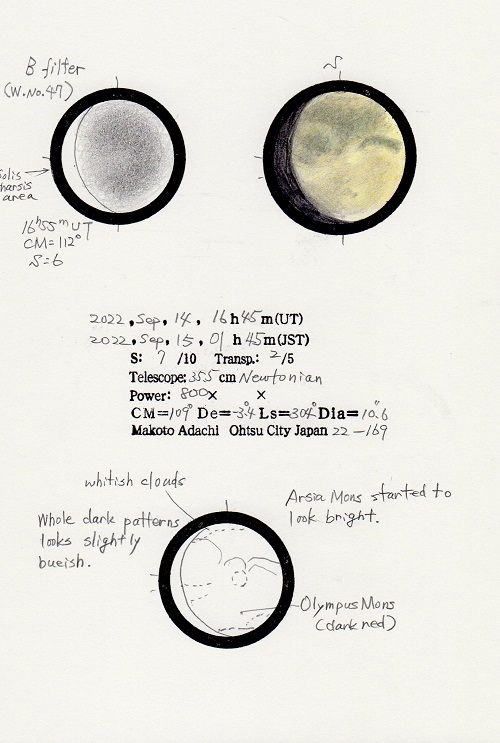 B filter
(W.No.47)
S
Solis
Tharsis
area
16h55m UT
CM=112°
S=6
2022, Sep, 14, 16h45m(UT)
2022, Sep, 15, 01h45m(JST)
S: 7 /10 Transp.: 2/5
Telescope: 355 cm Newtonian
Power: 800× ×
CM=109° De=-3.4° Ls=304° Dia=10."6
Makoto Adachi Ohtsu City Japan 22-169
whitish clouds
Arsia Mons started to
look bright.
Whole dark patterns
looks slightly
bueish.
Olympus Mons
(darkned)